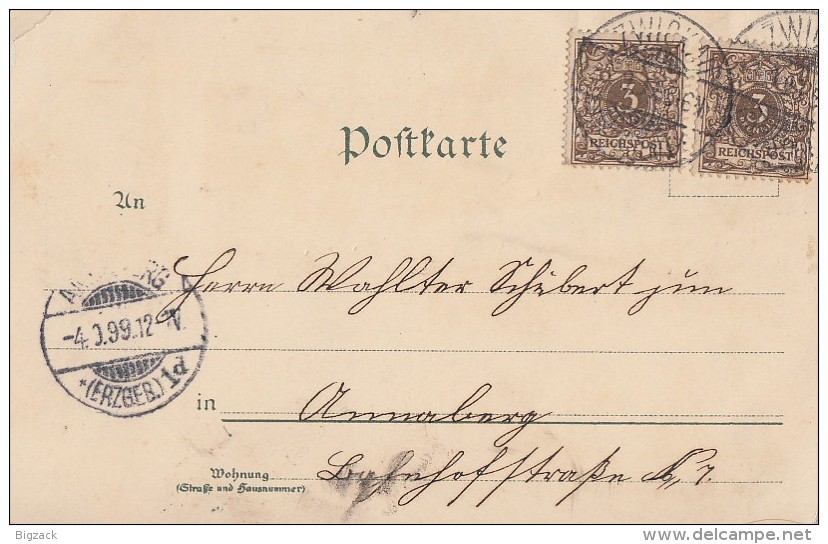 ZWICK
ZWIC
3
3
REICHSPOST
REICHSPOST
Postkarte
An
Herrn Wahlter Schübert jun
-4. 10.99.12-V.
*(ERZGEB.) 1d
in Annaberg
Wohnung
(Straße und Hausnummer)
Bahnhofstraße N. 7.
Bigzack
delcampe.net